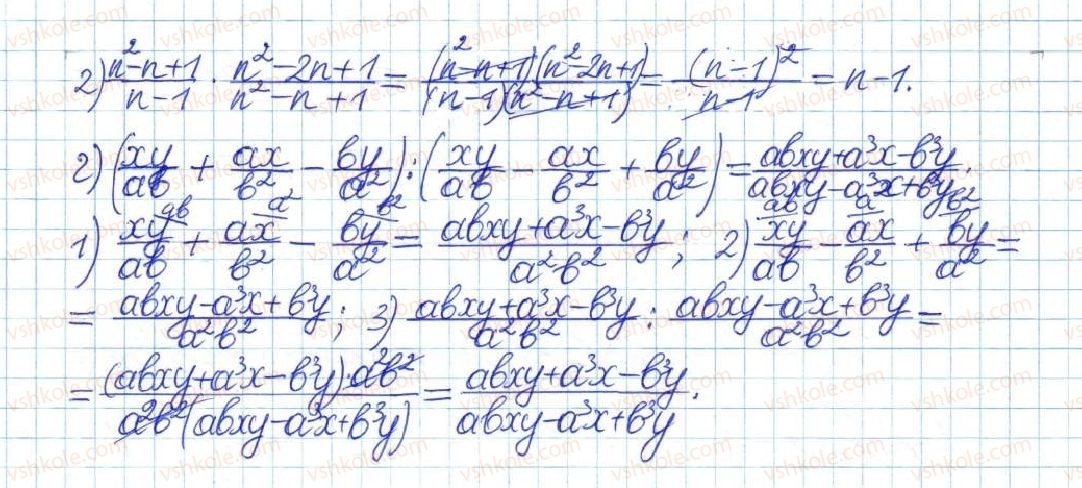 2) (n²-n+1)/(n-1) · (n²-2n+1)/(n²-n+1) = ((n²-n+1)(n²-2n+1))/((n-1)(n²-n+1)) = (n-1)²/(n-1) = n-1.
2) (xy/ab + ax/b² - by/a²) : (xy/ab - ax/b² + by/a²) = (abxy+a³x-b³y)/(abxy-a³x+b³y).
1) xy/ab + ax/b² - by/a² = (abxy+a³x-b³y)/(a²b²); 2) xy/ab - ax/b² + by/a² =
= (abxy-a³x+b³y)/(a²b²); 3) (abxy+a³x-b³y)/(a²b²) : (abxy-a³x+b³y)/(a²b²) =
= ((abxy+a³x-b³y)·a²b²)/(a²b²(abxy-a³x+b³y)) = (abxy+a³x-b³y)/(abxy-a³x+b³y).